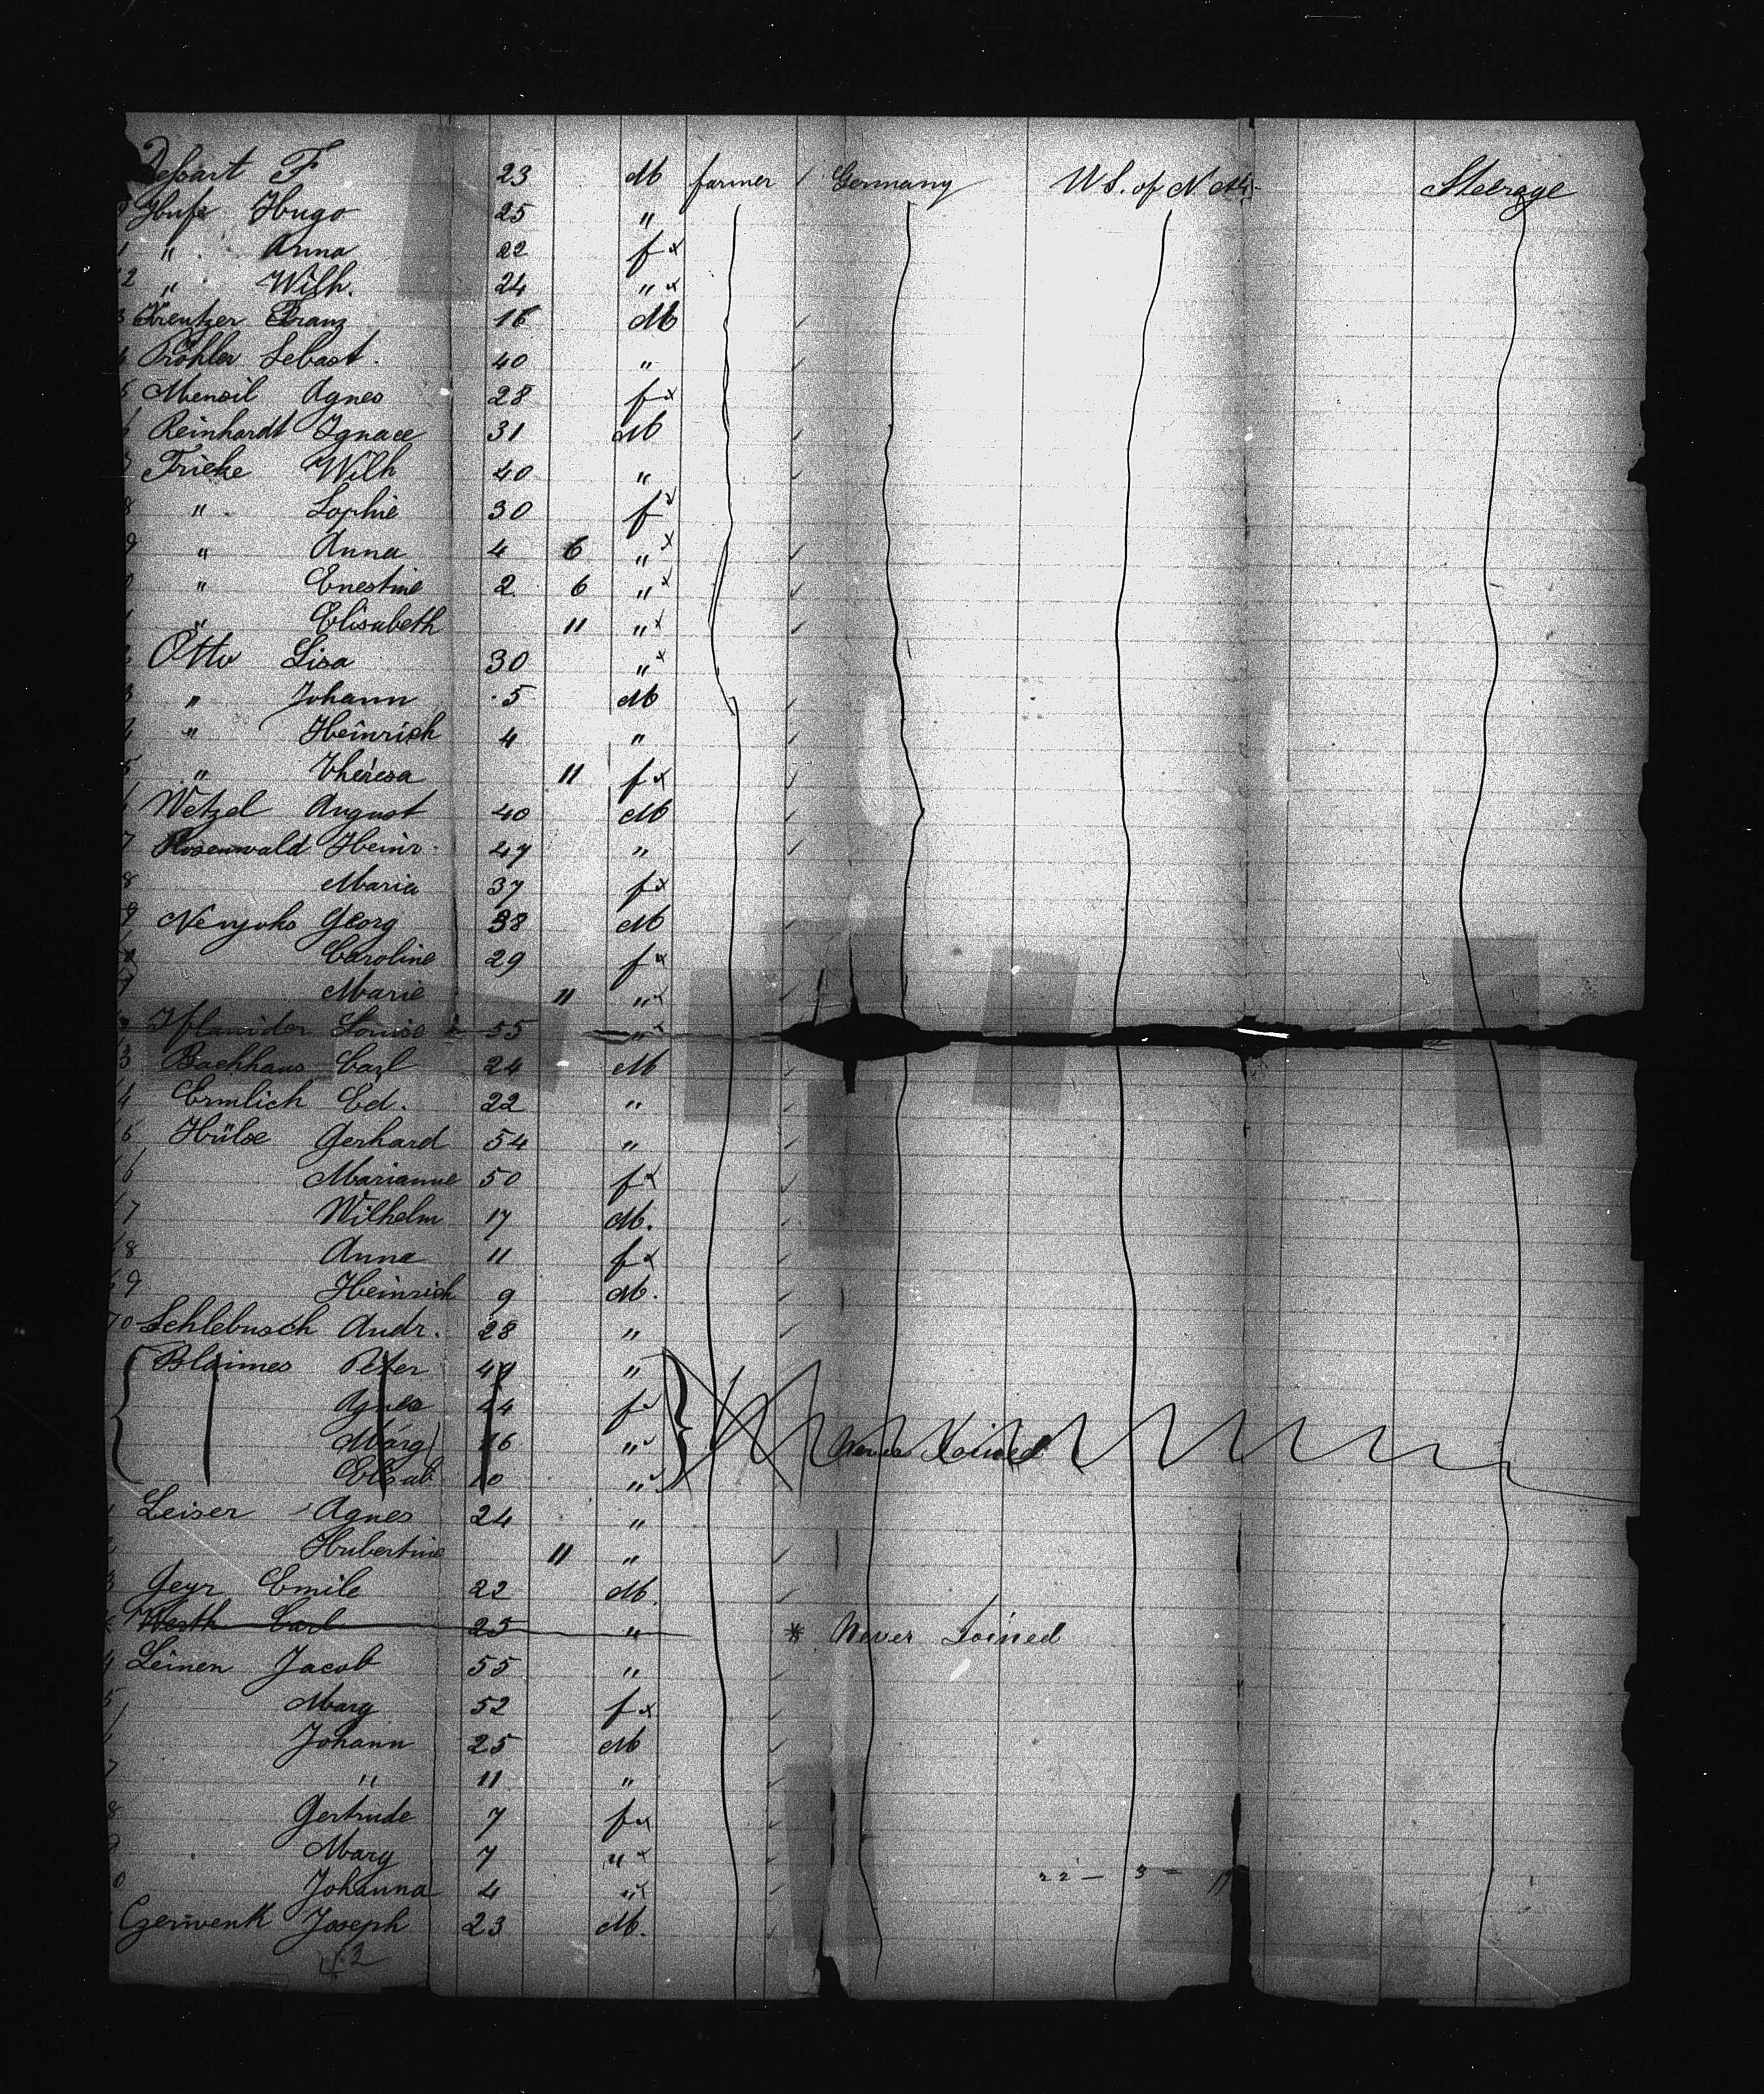 Dessart F 23 M farmer / Germany U S. of N Am. Steerage
Hufe Hugo 25 "
1 " Anna 22 f x
2 " Wilh. 24 " x
3 Kreutzer Franz 16 M
4 Pröhler Sebast. 40 "
5 Mensil Agnes 28 f x
6 Reinhardt Ignace 31 M
7 Fricke Wilh 40 "
8 " Sophie 30 f x
9 " Anna 4 6 " x
0 " Enestine 2 6 " x
" Elisabeth 11 " x
2 Otto Lisa 30 " x
3 " Johann 5 M
4 " Heinrich 4 "
5 " Theresa 11 f x
6 Wetzel August 40 M
7 Rosenwald Heinr. 47 "
8 Maria 37 f x
9 Georg 38 M
0 Caroline 29 f x
Marie 11 " x
Louise 55 " x
3 Bachhaus Carl 24 M
4 Ermlich Ed. 22 "
5 Hülse Gerhard 54 "
6 Marianne 50 f x
7 Wilhelm 17 M.
8 Anna 11 f x
9 Heinrich 9 M.
70 Schlebusch Andr. 28 "
Blaimes Peter 49 "
Agnes 44 f x
Marg 16 " x Never Joined
Elisab 10 " x
Leiser Agnes 24 "
Hubertine 11 "
3 Geyr Emile 22 M.
Werth Carl 25 " * Never Joined
4 Leinen Jacob 55 "
5 Marg 52 f x
Johann 25 M
7 " 11 "
8 Gertrude 7 f x
9 Marg 7 " x
0 Johanna 4 " x
Czerwenk Joseph 23 M.
42